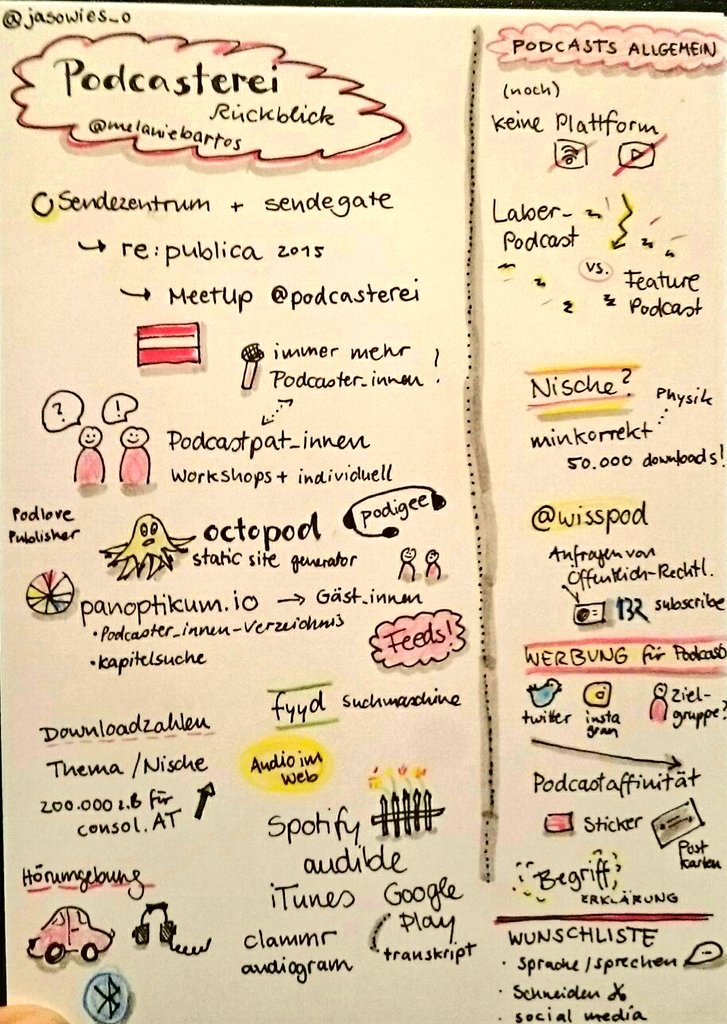 @jasowies_o
Podcasterei
Rückblick
@melaniebartos
Sendezentrum + sendegate
re:publica 2015
MeetUp @podcasterei
immer mehr
Podcaster_innen!
?
!
Podcastpat_innen
Workshops + individuell
Podlove
Publisher
octopod
static site generator
podigee
panoptikum.io → Gäst_innen
• Podcaster_innen-Verzeichnis
• Kapitelsuche
Feeds!
fyyd Suchmaschine
Downloadzahlen
Thema/Nische
200.000 z.B für
consol.AT
Audio im
Web
Spotify
audible
iTunes Google
Play
clammr
audiogram
transkript
Hörumgebung
PODCASTS ALLGEMEIN
(noch)
keine Plattform
Laber-
Podcast
vs.
Feature
Podcast
Nische?
Physik
minkorrekt
50.000 downloads!
@wisspod
Anfragen von
Öffentlich-Rechtl.
132 subscribe
WERBUNG für Podcasts
twitter
insta
gram
Ziel-
gruppe?
Podcastaffinität
Sticker
Post
karten
Begriff
ERKLÄRUNG
WUNSCHLISTE
• Sprache/sprechen
• Schneiden
• social media